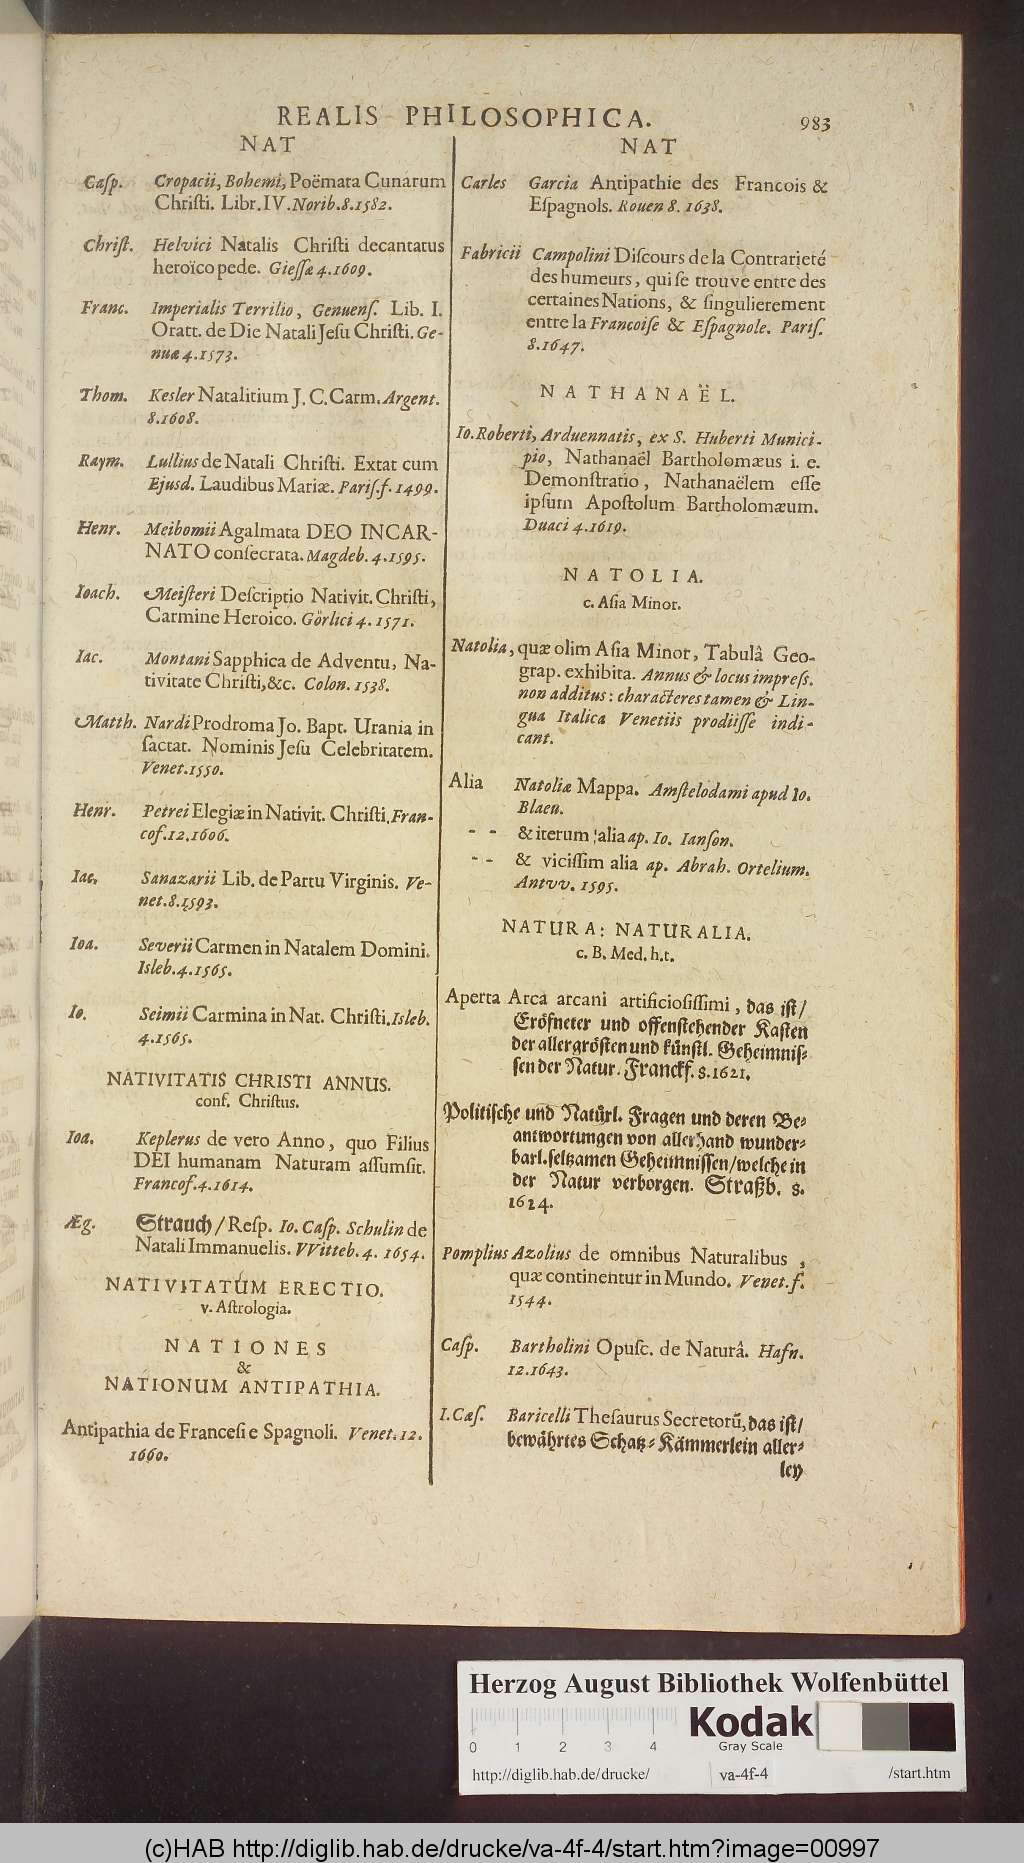 REALIS PHILOSOPHICA. 983
NAT
Caſp. Cropacii, Bohemi, Poëmata Cunarum
Chriſti. Libr. IV. Norib. 8. 1582.
Chriſt. Helvici Natalis Chriſti decantatus
heroïco pede. Gieſſæ 4. 1609.
Franc. Imperialis Terrilio, Genuenſ. Lib. I.
Oratt. de Die Natali Jeſu Chriſti. Ge-
nuæ 4. 1573.
Thom. Kesler Natalitium J. C. Carm. Argent.
8. 1608.
Raym. Lullius de Natali Chriſti. Extat cum
Ejusd. Laudibus Mariæ. Pariſ. f. 1499.
Henr. Meibomii Agalmata DEO INCAR-
NATO conſecrata. Magdeb. 4. 1595.
Ioach. Meiſteri Deſcriptio Nativit. Chriſti,
Carmine Heroico. Görlici 4. 1571.
Iac. Montani Sapphica de Adventu, Na-
tivitate Chriſti, &c. Colon. 1538.
Matth. Nardi Prodroma Jo. Bapt. Urania in
ſactat. Nominis Jeſu Celebritatem.
Venet. 1550.
Henr. Petrei Elegiæ in Nativit. Chriſti. Fran-
cof. 12. 1606.
Iac. Sanazarii Lib. de Partu Virginis. Ve-
net. 8. 1593.
Ioa. Severii Carmen in Natalem Domini.
Isleb. 4. 1565.
Io. Seimii Carmina in Nat. Chriſti. Isleb.
4. 1565.
NATIVITATIS CHRISTI ANNUS.
conf. Chriſtus.
Ioa. Keplerus de vero Anno, quo Filius
DEI humanam Naturam aſſumſit.
Francof. 4. 1614.
Æg. Strauch / Reſp. Io. Caſp. Schulin de
Natali Immanuelis. VVitteb. 4. 1654.
NATIVITATUM ERECTIO.
v. Aſtrologia.
NATIONES
&
NATIONUM ANTIPATHIA.
Antipathia de Franceſi e Spagnoli. Venet. 12.
1660.
NAT
Carles Garcia Antipathie des Francois &
Eſpagnols. Rouen 8. 1638.
Fabricii Campolini Diſcours de la Contrarieté
des humeurs, qui ſe trouve entre des
certaines Nations, & ſingulierement
entre la Francoiſe & Eſpagnole. Pariſ.
8. 1647.
NATHANAËL.
Io. Roberti, Arduennatis, ex S. Huberti Munici-
pio, Nathanaël Bartholomæus i. e.
Demonſtratio, Nathanaëlem eſſe
ipſum Apoſtolum Bartholomæum.
Duaci 4. 1619.
NATOLIA.
c. Aſia Minor.
Natolia, quæ olim Aſia Minor, Tabulâ Geo-
grap. exhibita. Annus & locus impreſs.
non additus: characteres tamen & Lin-
gua Italica Venetiis prodiiſſe indi-
cant.
Alia Natoliæ Mappa. Amſtelodami apud Io.
Blaeu.
- - & iterum alia ap. Io. Ianſon.
- - & viciſſim alia ap. Abrah. Ortelium.
Antvv. 1595.
NATURA: NATURALIA.
c. B. Med. h. t.
Aperta Arca arcani artificioſiſſimi, das iſt/
Eröfneter und offenſtehender Kaſten
der allergröſten und künſtl. Geheimniſ-
ſen der Natur. Franckf. 8. 1621.
Politiſche und Natürl. Fragen und deren Be-
antwortungen von allerhand wunder-
barl. ſeltzamen Geheimniſſen/welche in
der Natur verborgen. Straßb. 8.
1624.
Pomplius Azolius de omnibus Naturalibus,
quæ continentur in Mundo. Venet. f.
1544.
Caſp. Bartholini Opuſc. de Naturâ. Hafn.
12. 1643.
I. Cæſ. Baricelli Theſaurus Secretorũ, das iſt/
bewährtes Schatz-Kämmerlein aller-
ley
Herzog August Bibliothek Wolfenbüttel
0 1 2 3 4
Kodak
Gray Scale
http://diglib.hab.de/drucke/ va-4f-4 /start.htm
(c)HAB http://diglib.hab.de/drucke/va-4f-4/start.htm?image=00997